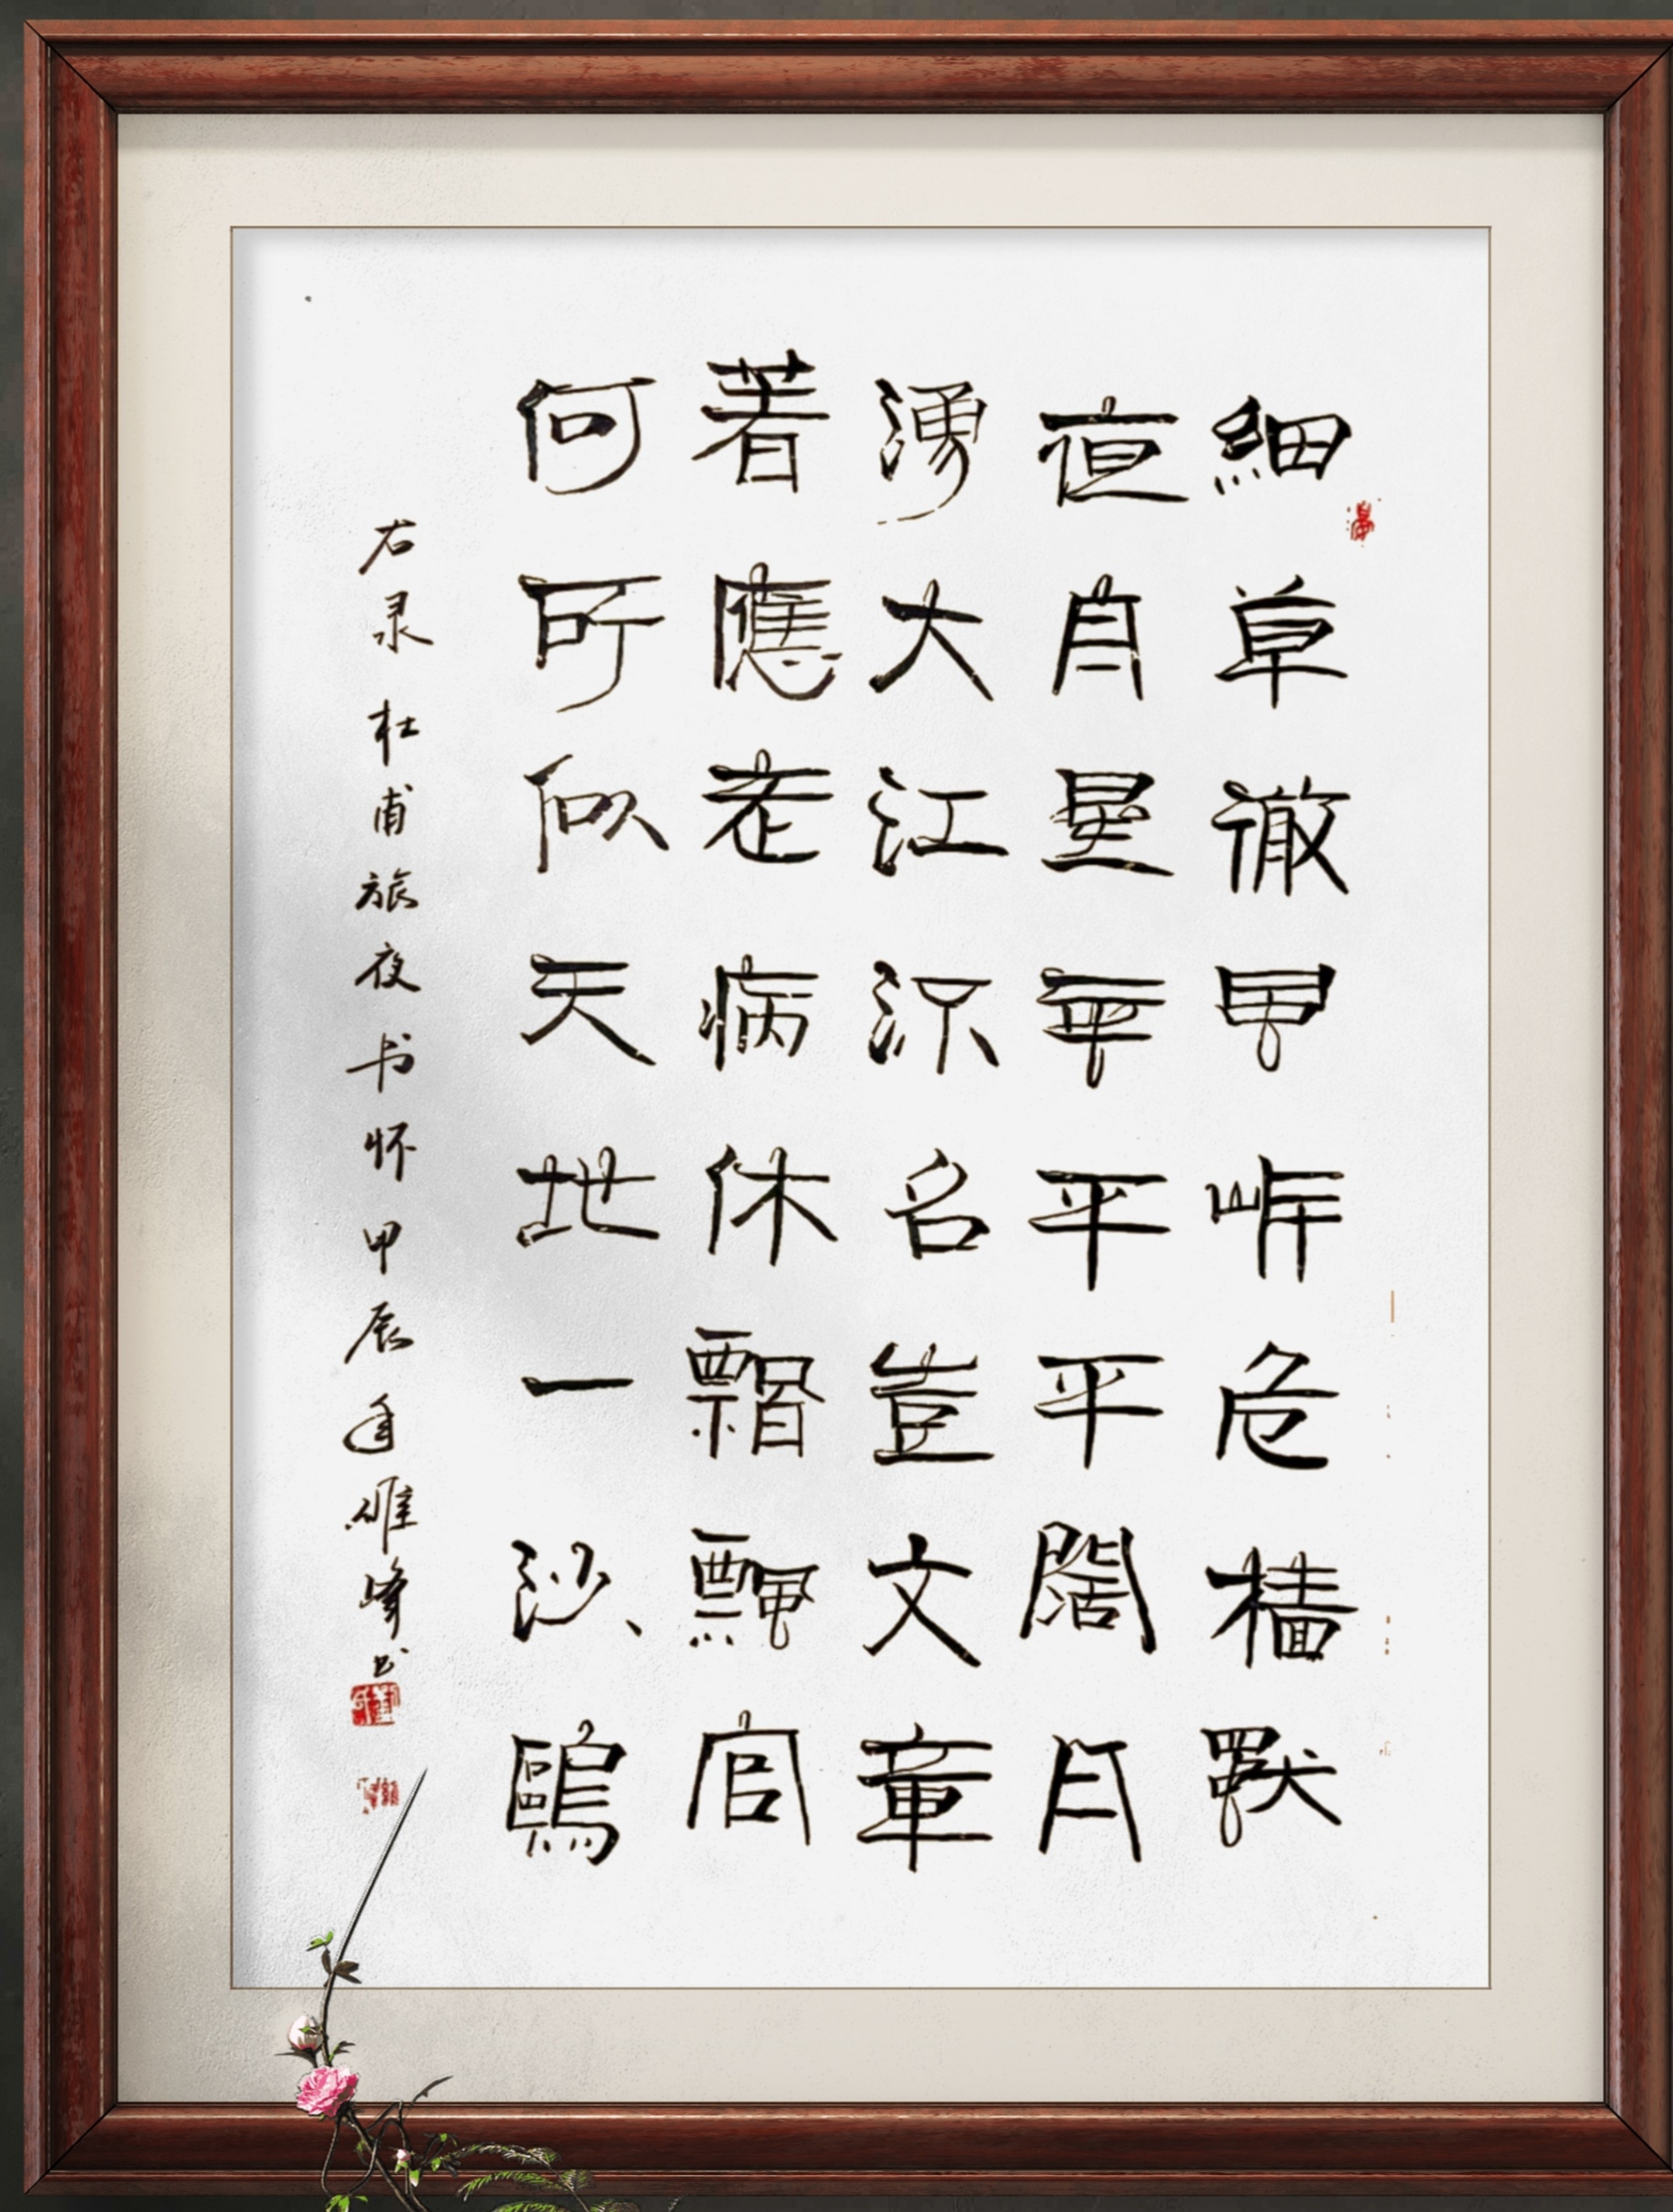 細草微風岸危檣獸
夜舟星垂平平闊月
湧大江流名豈文章
著應老病休飄飄官
何所似天地一沙鷗
右录杜甫旅夜书怀甲辰年雄峰书